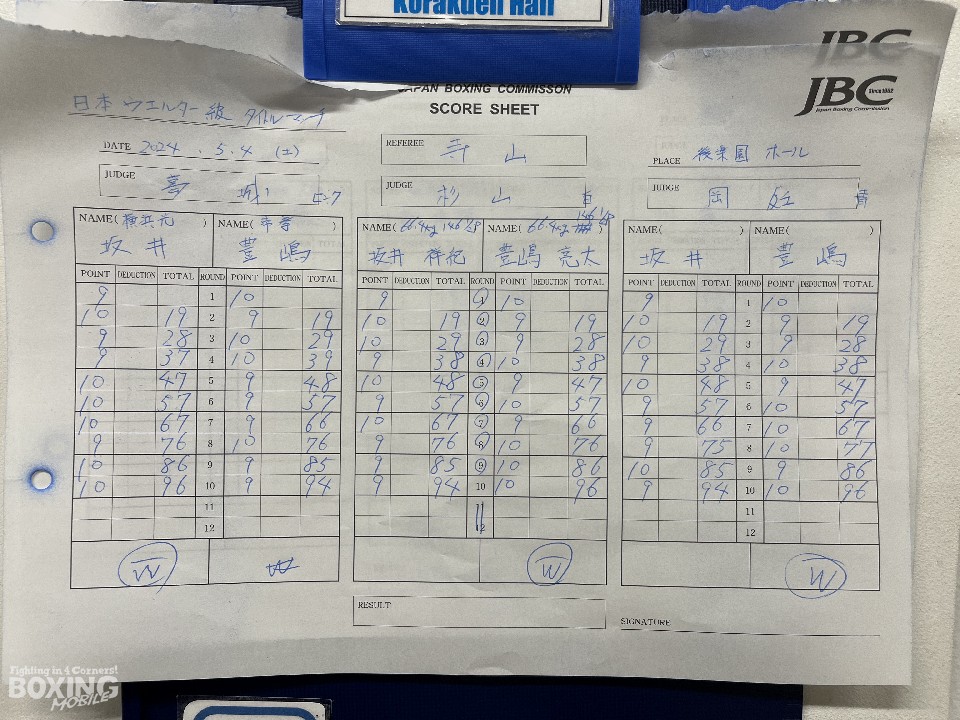 Korakuen Hall
JBC
JAPAN BOXING COMMISSON
SCORE SHEET
JBC Since 1952
Japan Boxing Commission
日本ウエルター級タイトルマッチ
DATE 2024.5.4 (土)
REFEREE 寺山
PLACE 後楽園ホール
JUDGE 葛城
JUDGE 杉山
JUDGE
NAME(横浜光) NAME( ) NAME(66.4kg 146 1/2) NAME(66.4kg 146 1/2) NAME( ) NAME( )
坂井 豊嶋 坂井 祥紀 豊嶋 亮太 坂井 豊嶋
POINT DEDUCTION TOTAL ROUND POINT DEDUCTION TOTAL POINT DEDUCTION TOTAL ROUND POINT DEDUCTION TOTAL POINT DEDUCTION TOTAL ROUND POINT DEDUCTION TOTAL
9 1 10 9 1 10 9 1 10
10 19 2 9 19 10 19 2 9 19 10 19 2 9 19
9 28 3 10 29 10 29 3 9 28 10 29 3 9 28
9 37 4 10 39 9 38 4 10 38 9 38 4 10 38
10 47 5 9 48 10 48 5 9 47 10 48 5 9 47
10 57 6 9 57 9 57 6 10 57 9 57 6 10 57
10 67 7 9 66 10 67 7 9 66 9 66 7 10 67
9 76 8 10 76 9 76 8 10 76 9 75 8 10 77
10 86 9 9 85 9 85 9 10 86 10 85 9 9 86
10 96 10 9 94 9 94 10 10 96 9 94 10 10 96
11 11 11
12 12 12
W W W W
RESULT
SIGNATURE
Fighting in 4 Corners!
BOXING
MOBILE